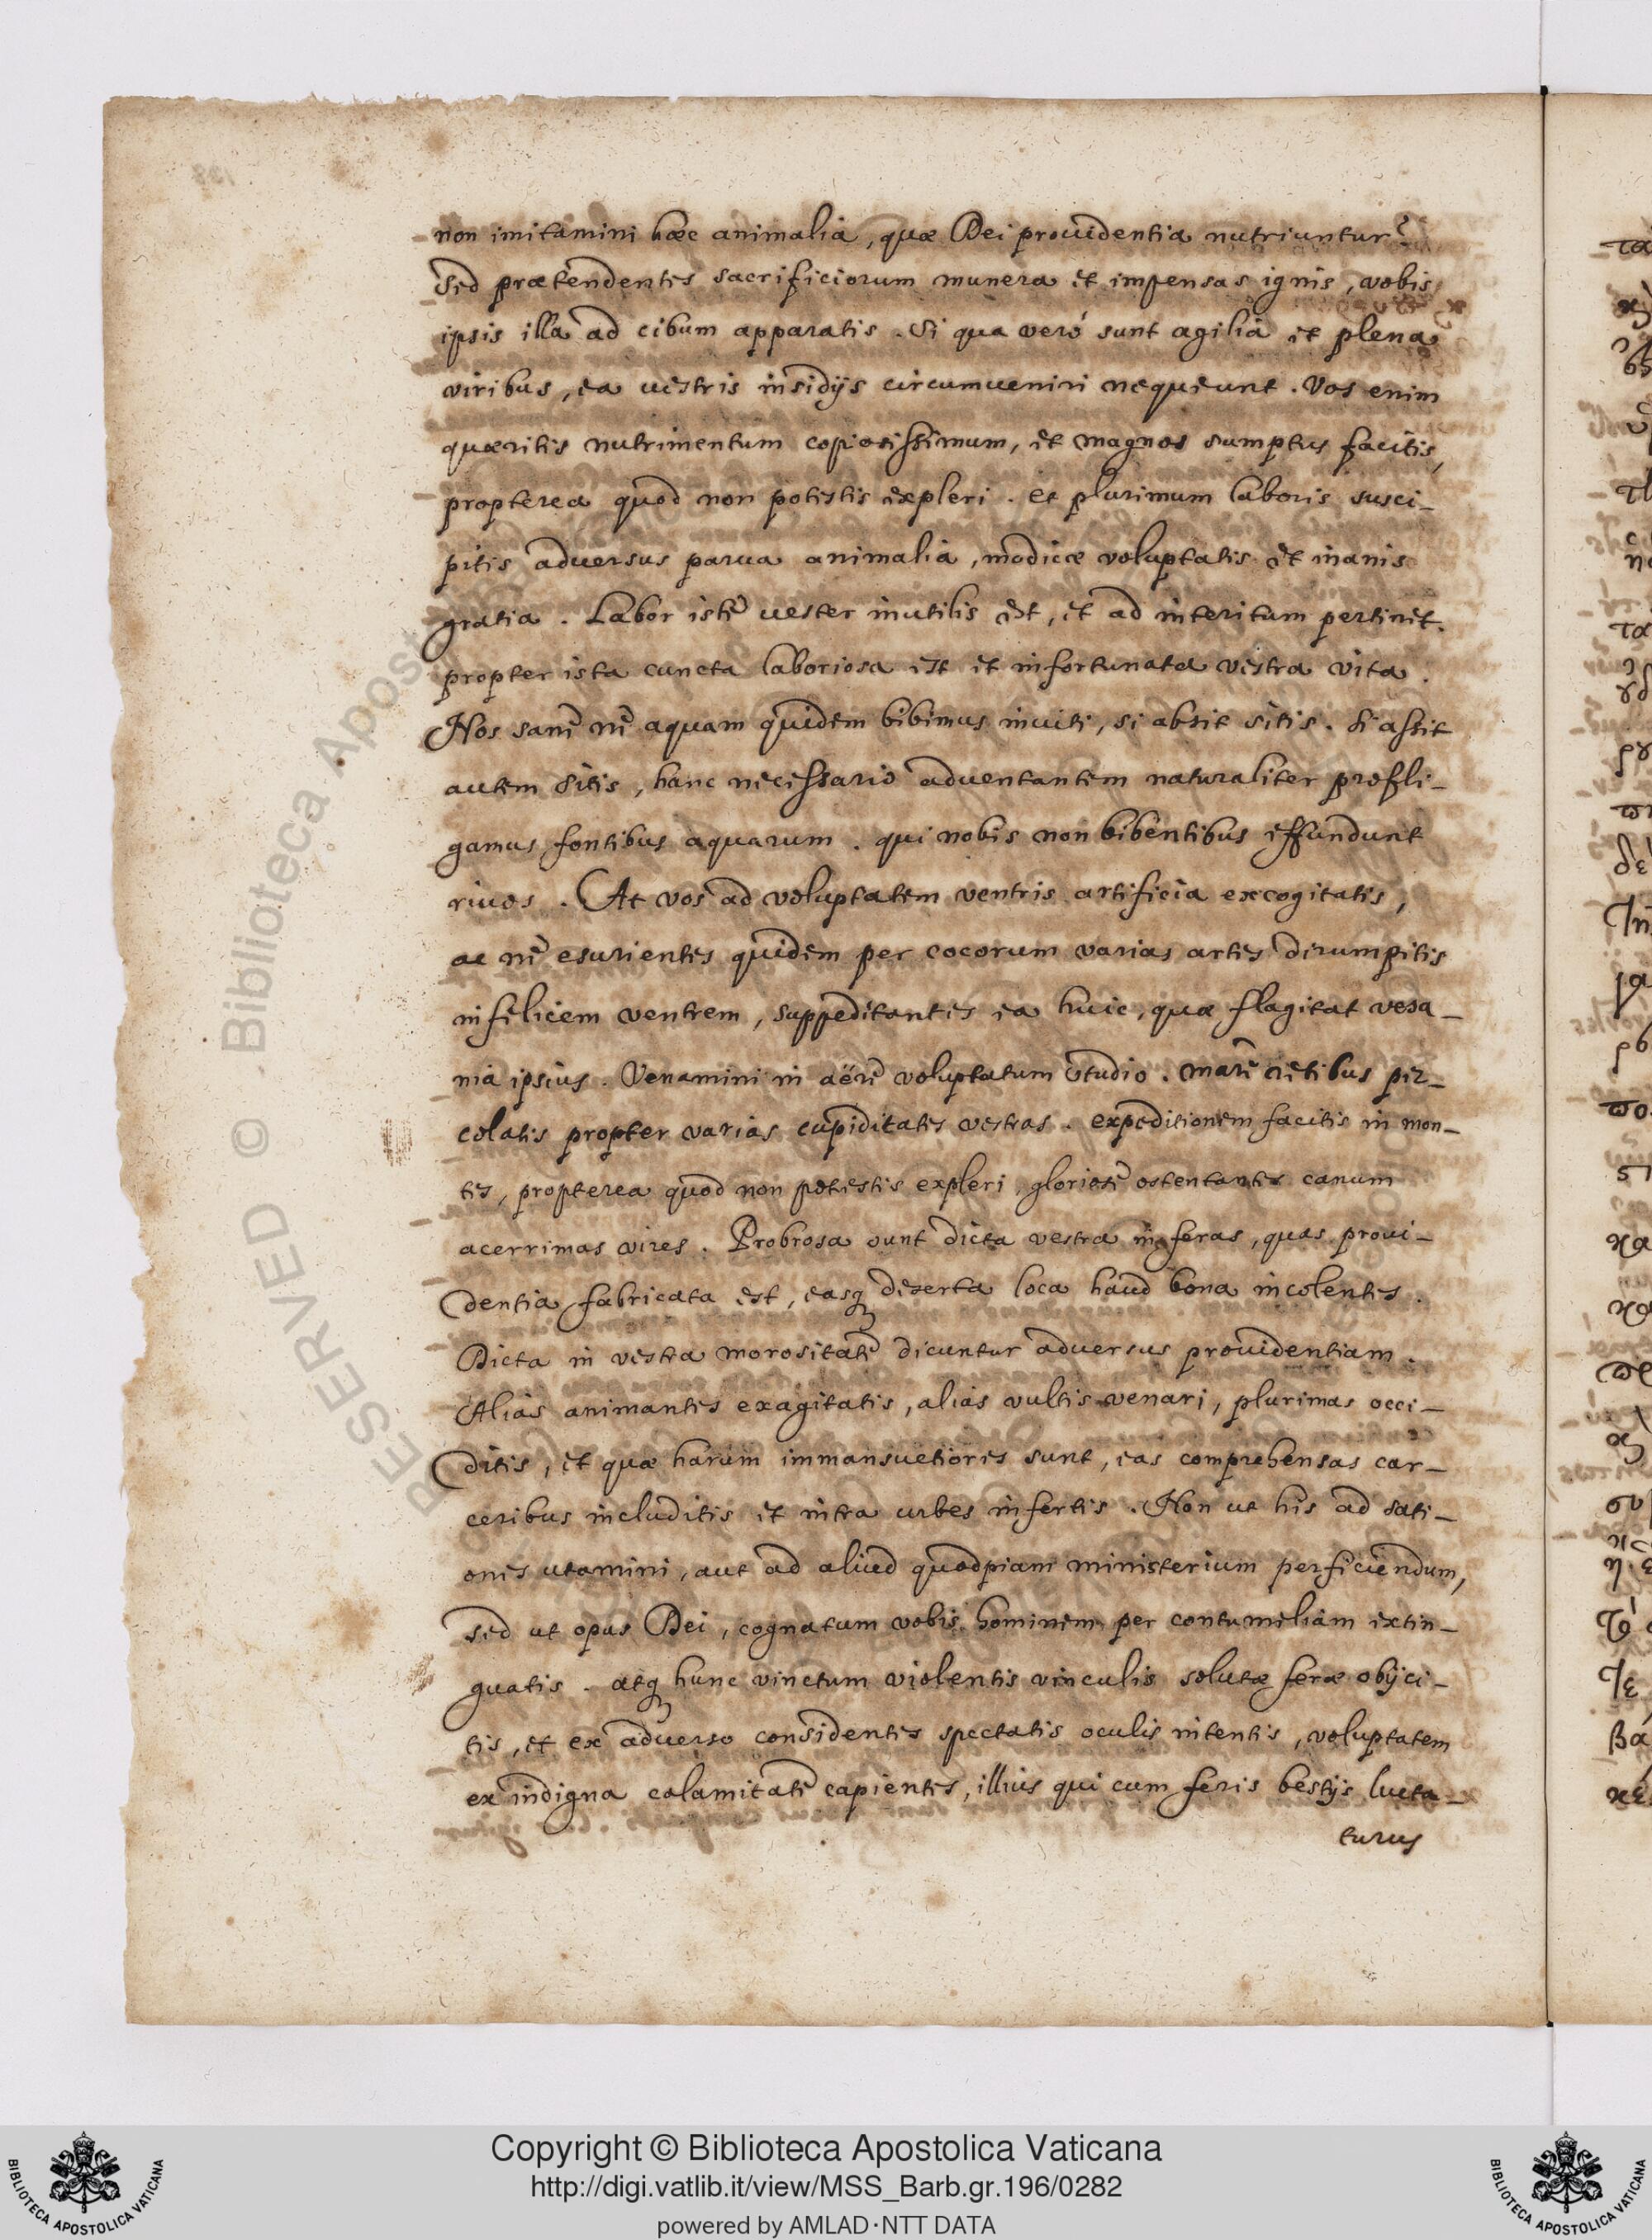 non imitamini hæc animalia, quæ Dei prouidentia nutriuntur?
Sed prætendentes sacrificiorum munera et impensas ignis, vobis
ipsis illa ad cibum apparatis. Si qua verò sunt agilia et plena
viribus, ea uestris insidijs circumueniri nequeunt. Vos enim
quæritis nutrimentum copiosissimum, et magnos sumptus facitis,
propterea quod non potestis expleri. et plurimum laboris susci-
pitis aduersus parua animalia, modicæ voluptatis et inanis
gratia. Labor iste uester inutilis est, et ad interitum pertinet.
propter ista cuncta laboriosa est et infortunata vestra vita.
Nos sane ne aquam quidem bibimus inuiti, si absit sitis. Si assit
autem sitis, hanc necessario aduentantem naturaliter profli-
gamus fontibus aquarum. qui nobis non bibentibus effundunt
riuos. At vos ad voluptatem ventris artificia excogitatis,
ac ne esurientes quidem per cocorum varias artes dirumpitis
infelicem ventrem, suppeditantes ea huic, quæ flagitat vesa-
nia ipsius. Venamini in aëre voluptatum studio. mare retibus per-
colatis propter varias cupiditates vestras. expeditionem facitis in mon-
tes, propterea quod non potestis expleri, gloriose ostentantes canum
acerrimas vires. Probrosa sunt dicta vestra in feras, quas proui-
dentia fabricata est, easq deserta loca haud bona incolentes.
Dicta in vestra morositate dicuntur aduersus prouidentiam.
Alias animantes exagitatis, alias vultis venari, plurimas occi-
ditis, et quæ harum immansuetiores sunt, eas comprehensas car-
ceribus includitis et intra urbes infertis. Non ut his ad sati-
ones utamini, aut ad aliud quodpiam ministerium perficiendum,
sed ut opus Dei, cognatum vobis hominem per contumeliam extin-
guatis. atq hunc vinctum violentis vinculis solutæ feræ obijci-
tis, et ex aduerso considentes spectatis oculis intentis, voluptatem
ex indigna calamitate capientes, illius qui cum feris bestijs lucta-
turus
RESERVED © Biblioteca Apost
Copyright © Biblioteca Apostolica Vaticana
http://digi.vatlib.it/view/MSS_Barb.gr.196/0282
powered by AMLAD·NTT DATA
BIBLIOTECA APOSTOLICA VATICANA
BIBLIOTECA APOSTOLICA VATICANA